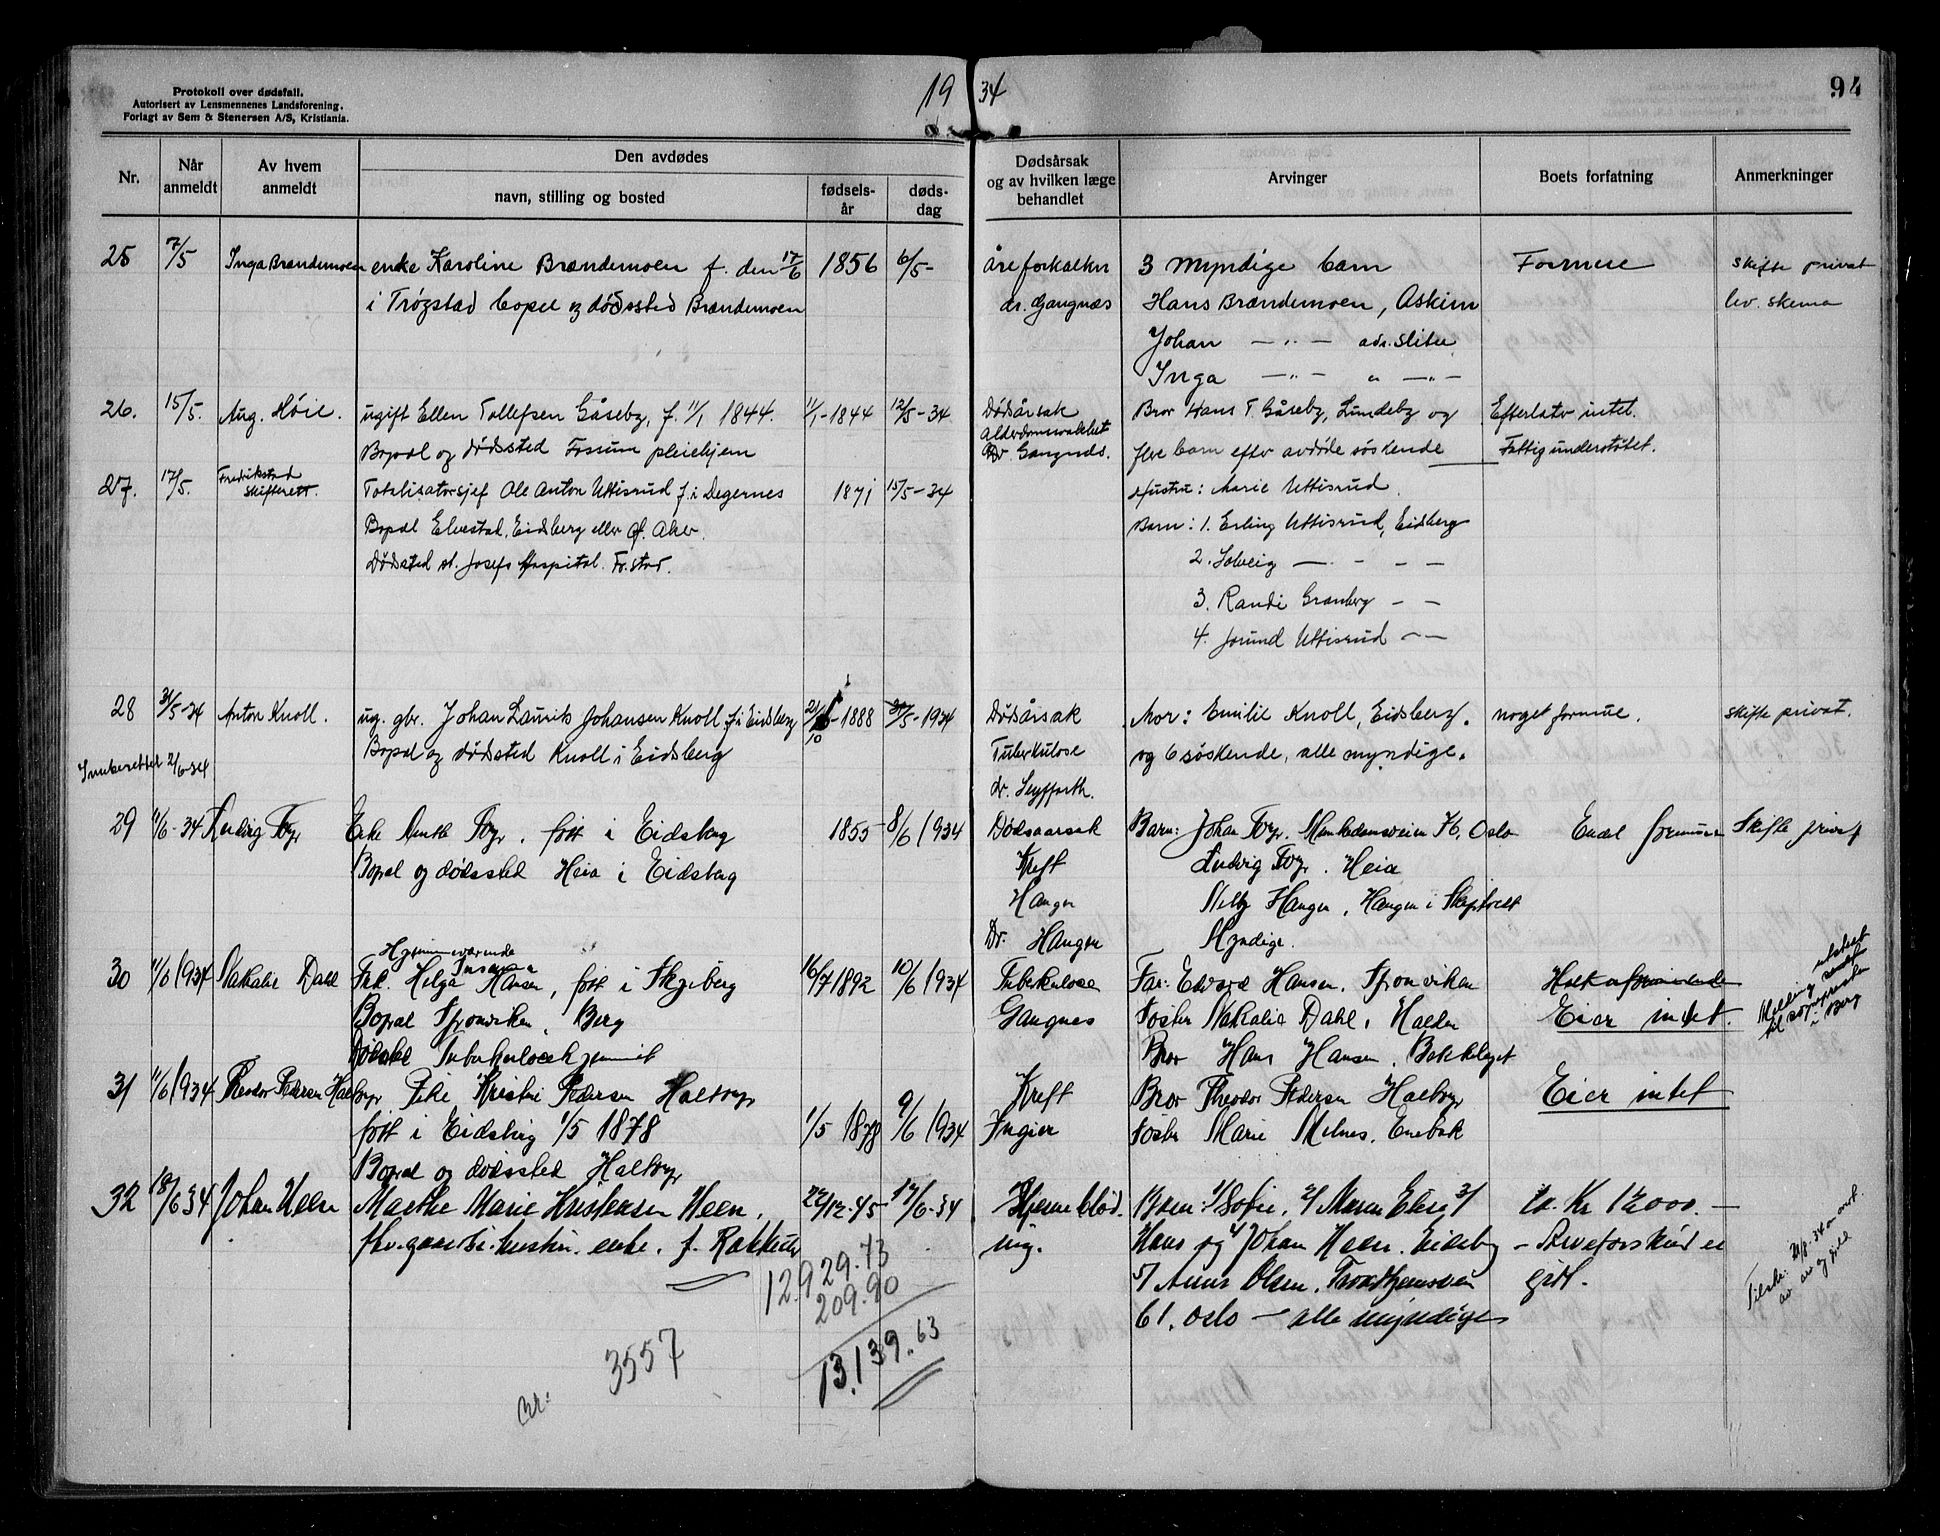 Protokoll over dødsfall.
Autorisert av Lensmennenes Landsforening.
Forlagt av Sem & Stenersen A/S, Kristiania.
19 34
94
Nr.
Når anmeldt
Av hvem anmeldt
Den avdødes
navn, stilling og bosted
fødsels-år
døds-dag
Dødsårsak og av hvilken læge behandlet
Arvinger
Boets forfatning
Anmerkninger
25 7/5 Inga Brændemoen enke Karoline Brændemoen f. den 17/6 1856 6/5- åreforkalkn 3 myndige barn Formue skifte privat
i Trøgstad bopel og dødssted Brændemoen dr. Gangnæs Hans Brændemoen, Askim lev. skema
Johan — " — adr. Slitu
Inga — " — " — " —
26. 15/5. Aug. Höie. ugift Ellen Tollefsen Gåseby, f. 11/1 1844. 11/1-1844 12/5-34 Dødsårsak Bror Hans T. Gåseby, Lundeby og Efterlatr intet.
Bopæl og dödsted Fossum pleiehjem Dr. Gangnæs. flere barn efter avdøde søskende Fattigunderstøttet.
27. 17/5. Fredrikstad Skifterett. Totalisatorsjef Ole Anton Uttisrud f. i Degernes 1871 15/5-34 Hustru: Marie Uttisrud.
Bopæl Elvestad, Eidsberg eller Ø. Aker. Barn: 1. Erling Uttisrud, Eidsberg
Dødsted st. Josefs Hospital. Fr.stad. 2. Solveig — - — —
3. Randi Granberg — —
4. Jorund Uttisrud — —
28 31/5-34 Anton Knoll. ug. gbr. Johan Laurits Johansen Knoll f. i Eidsberg 21/10-1888 /5-1934 Dödsårsak Mor: Emilie Knoll, Eidsberg. noget formue. skifte privat.
Bopæl og dødsted Knoll i Eidsberg Tuberkulose og 6 søskende, alle myndige.
Innberettet 2/6-34 dr. Seyffarth.
29 11/6-34 Ludvig Eke født i Eidsberg 1855 8/6 1934 Dødsaarsak Barn: Johan Oslo Endel formue Skifte privat
Bopæl og dødssted Heia i Eidsberg Kreft Ludvig . Heia
Haugen Nelly Haugen, Haugen i Skiptvet
Dr. Haugen Myndige.
30 11/6 1934 Nathalie Dahl Hjemmeværende
Frk. Helga Hansen, født i Skjeberg 16/7 1892 10/6 1934 Tuberkulose Far: Edvard Hansen. Sponviken
Bopæl Sponviken, Berg Gangnes Søster Nathalie Dahl, Halden Eier intet.
Tuberkulosehjemmet Bror Hans Hansen. Bekkelaget
Melding
utskrst sendt
til sogneprest
i Berg
31 11/6 1934 Theodor Pedersen Kristine Pedersen Kreft Bror Theodor Pedersen Eier intet
født i Eidsberg 1/5 1878 1/5 1878 9/6 1934 Ingier Søster Marie Enebak
Bopæl og dødssted
32 18/6 34 Johan Heen Marthe Marie Kristensen Heen. 22/12-45 17/6-34 Hjerneblød- Barn: 1/ Sofie, 2/ 3/ ca. Kr 12000.—
enke. f. Rakkestad ning. Hans og 4/ Johan Heen. Eidsberg – Arveforskud er
5/ Anna Olsen. Trondhjemsveien gitt.
61. Oslo – alle myndige
12.929.73
209.90
13.139.63
nr: 3557